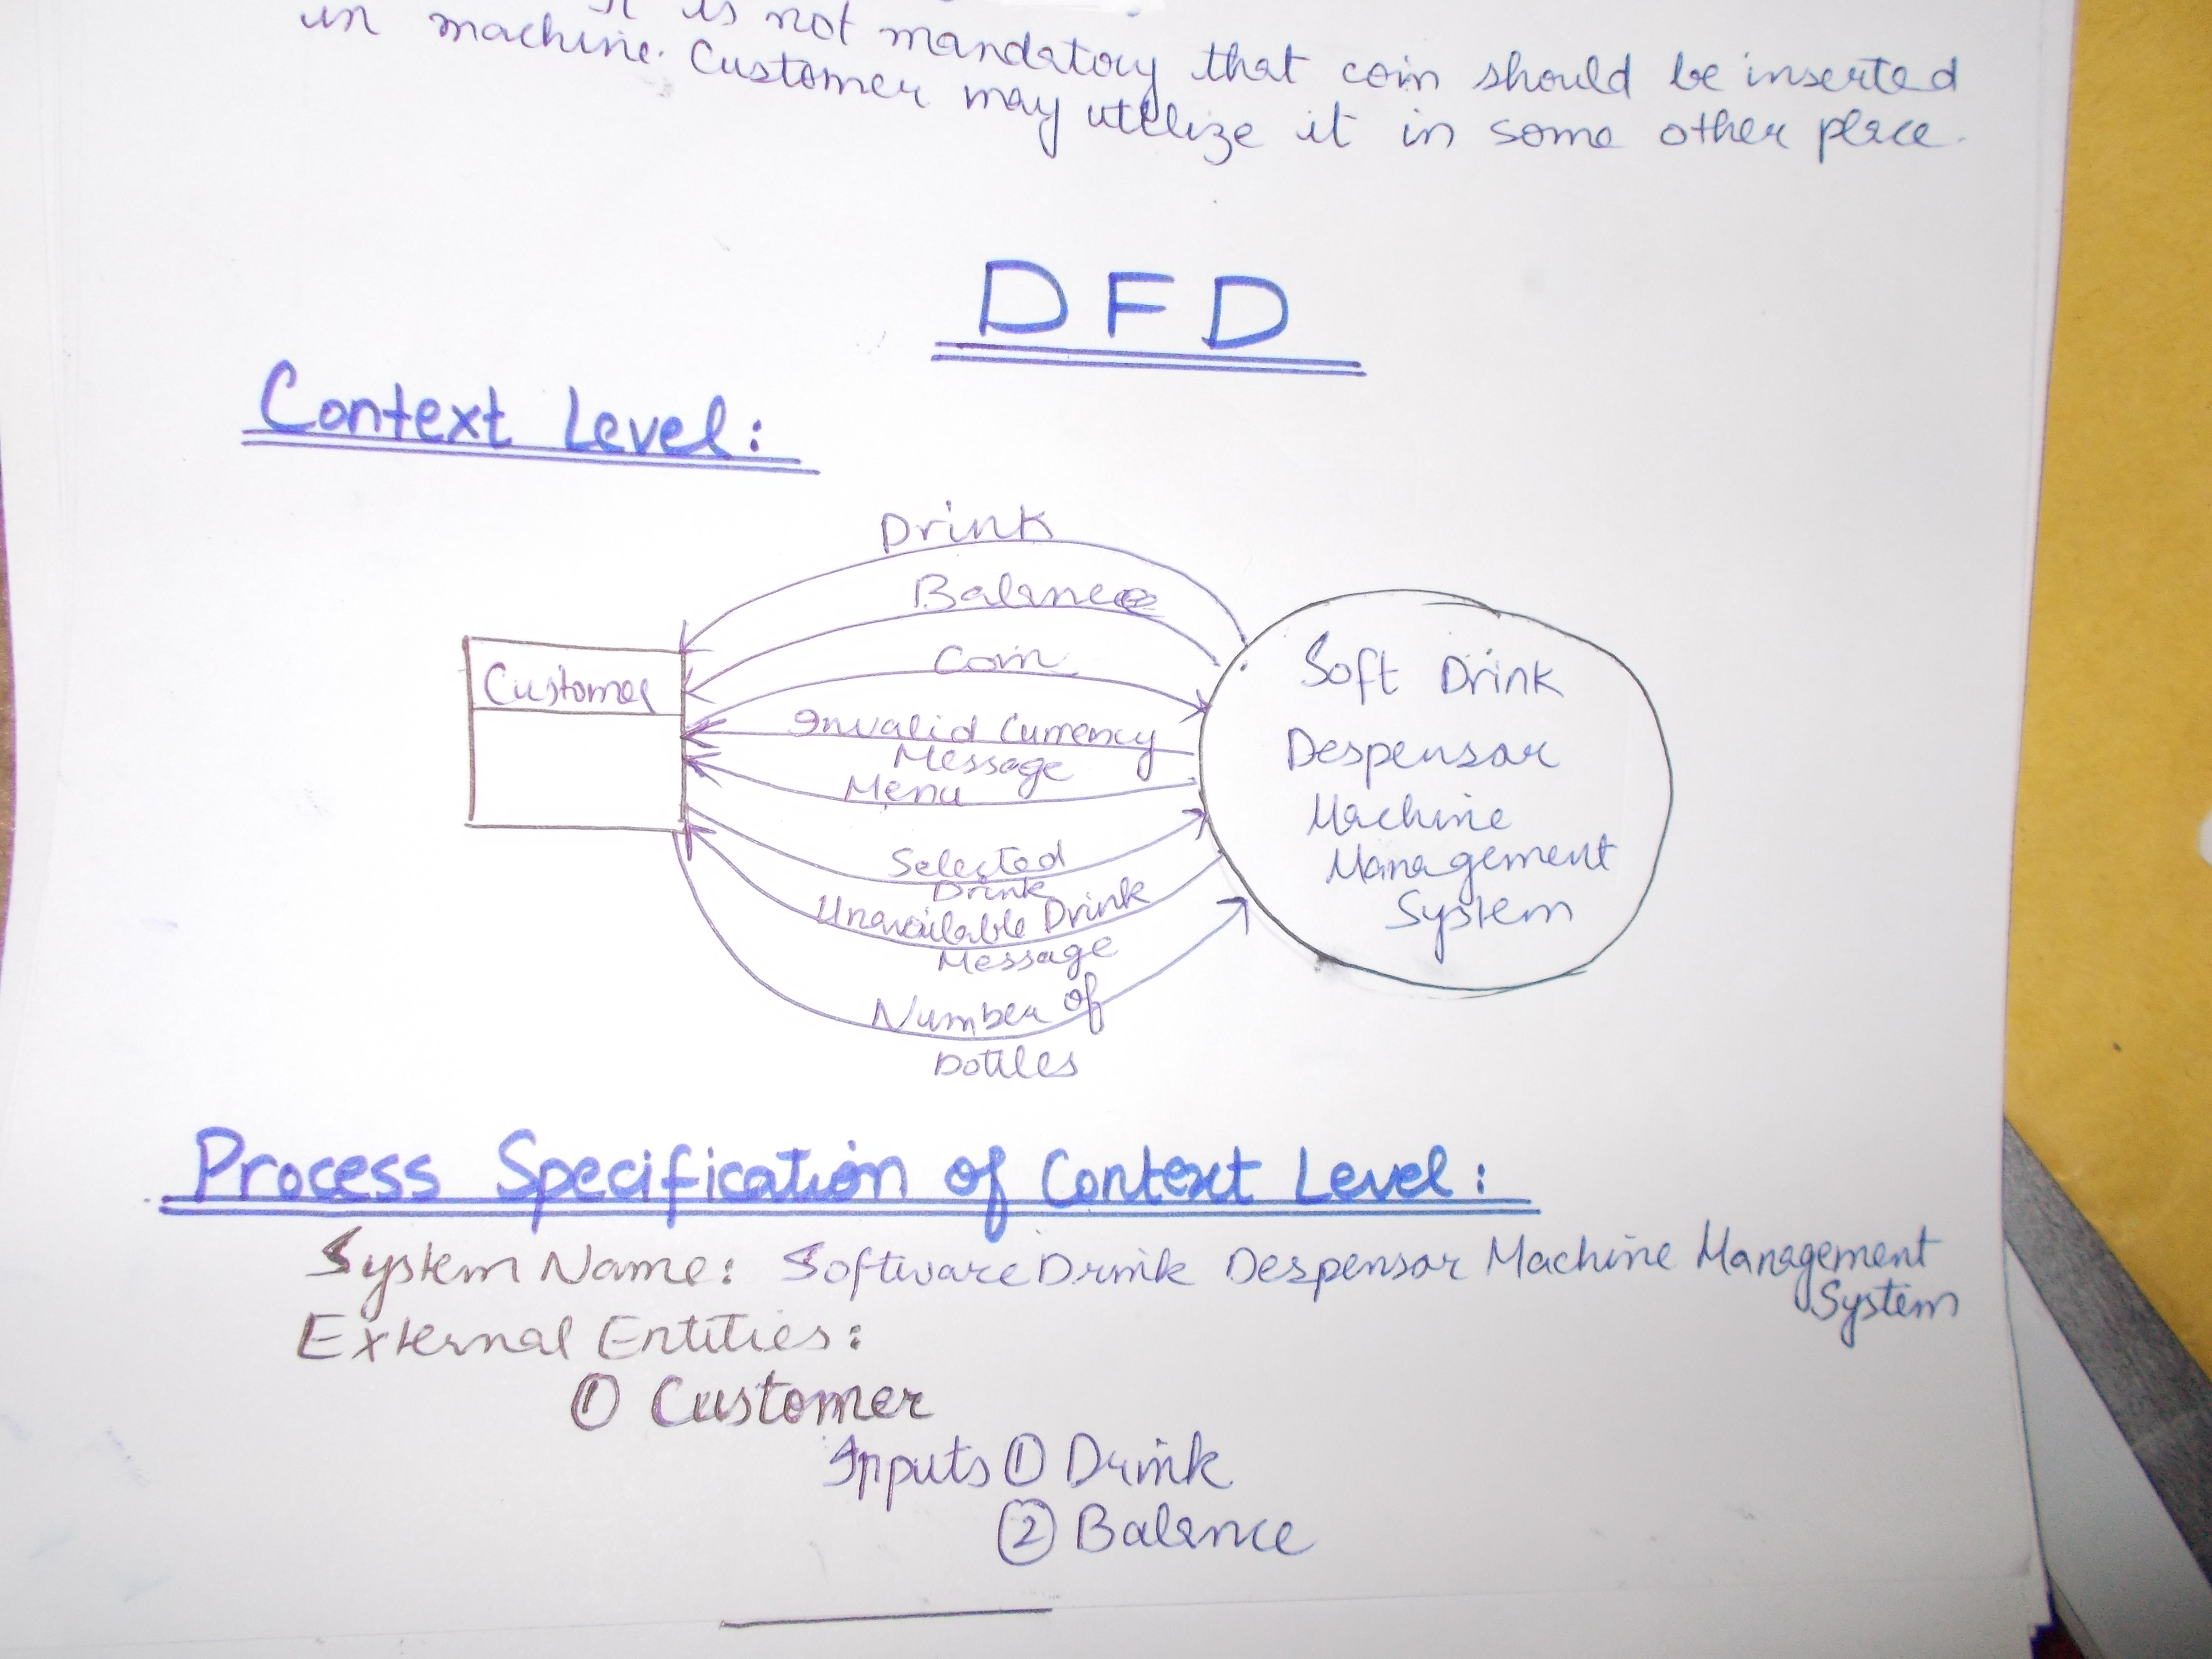 It is not mandatory that coin should be inserted
in machine. Customer may utilize it in some other place.
DFD
Context Level:
Drink
Balance
Coin
Customer
Invalid Currency
Message
Menu
Selected
Drink
Unavailable Drink
Message
Number of
Bottles
Soft Drink
Despensar
Machine
Management
System
Process Specification of Context Level:
System Name: Software Drink Despensar Machine Management
System
External Entities:
① Customer
Inputs ① Drink
② Balance